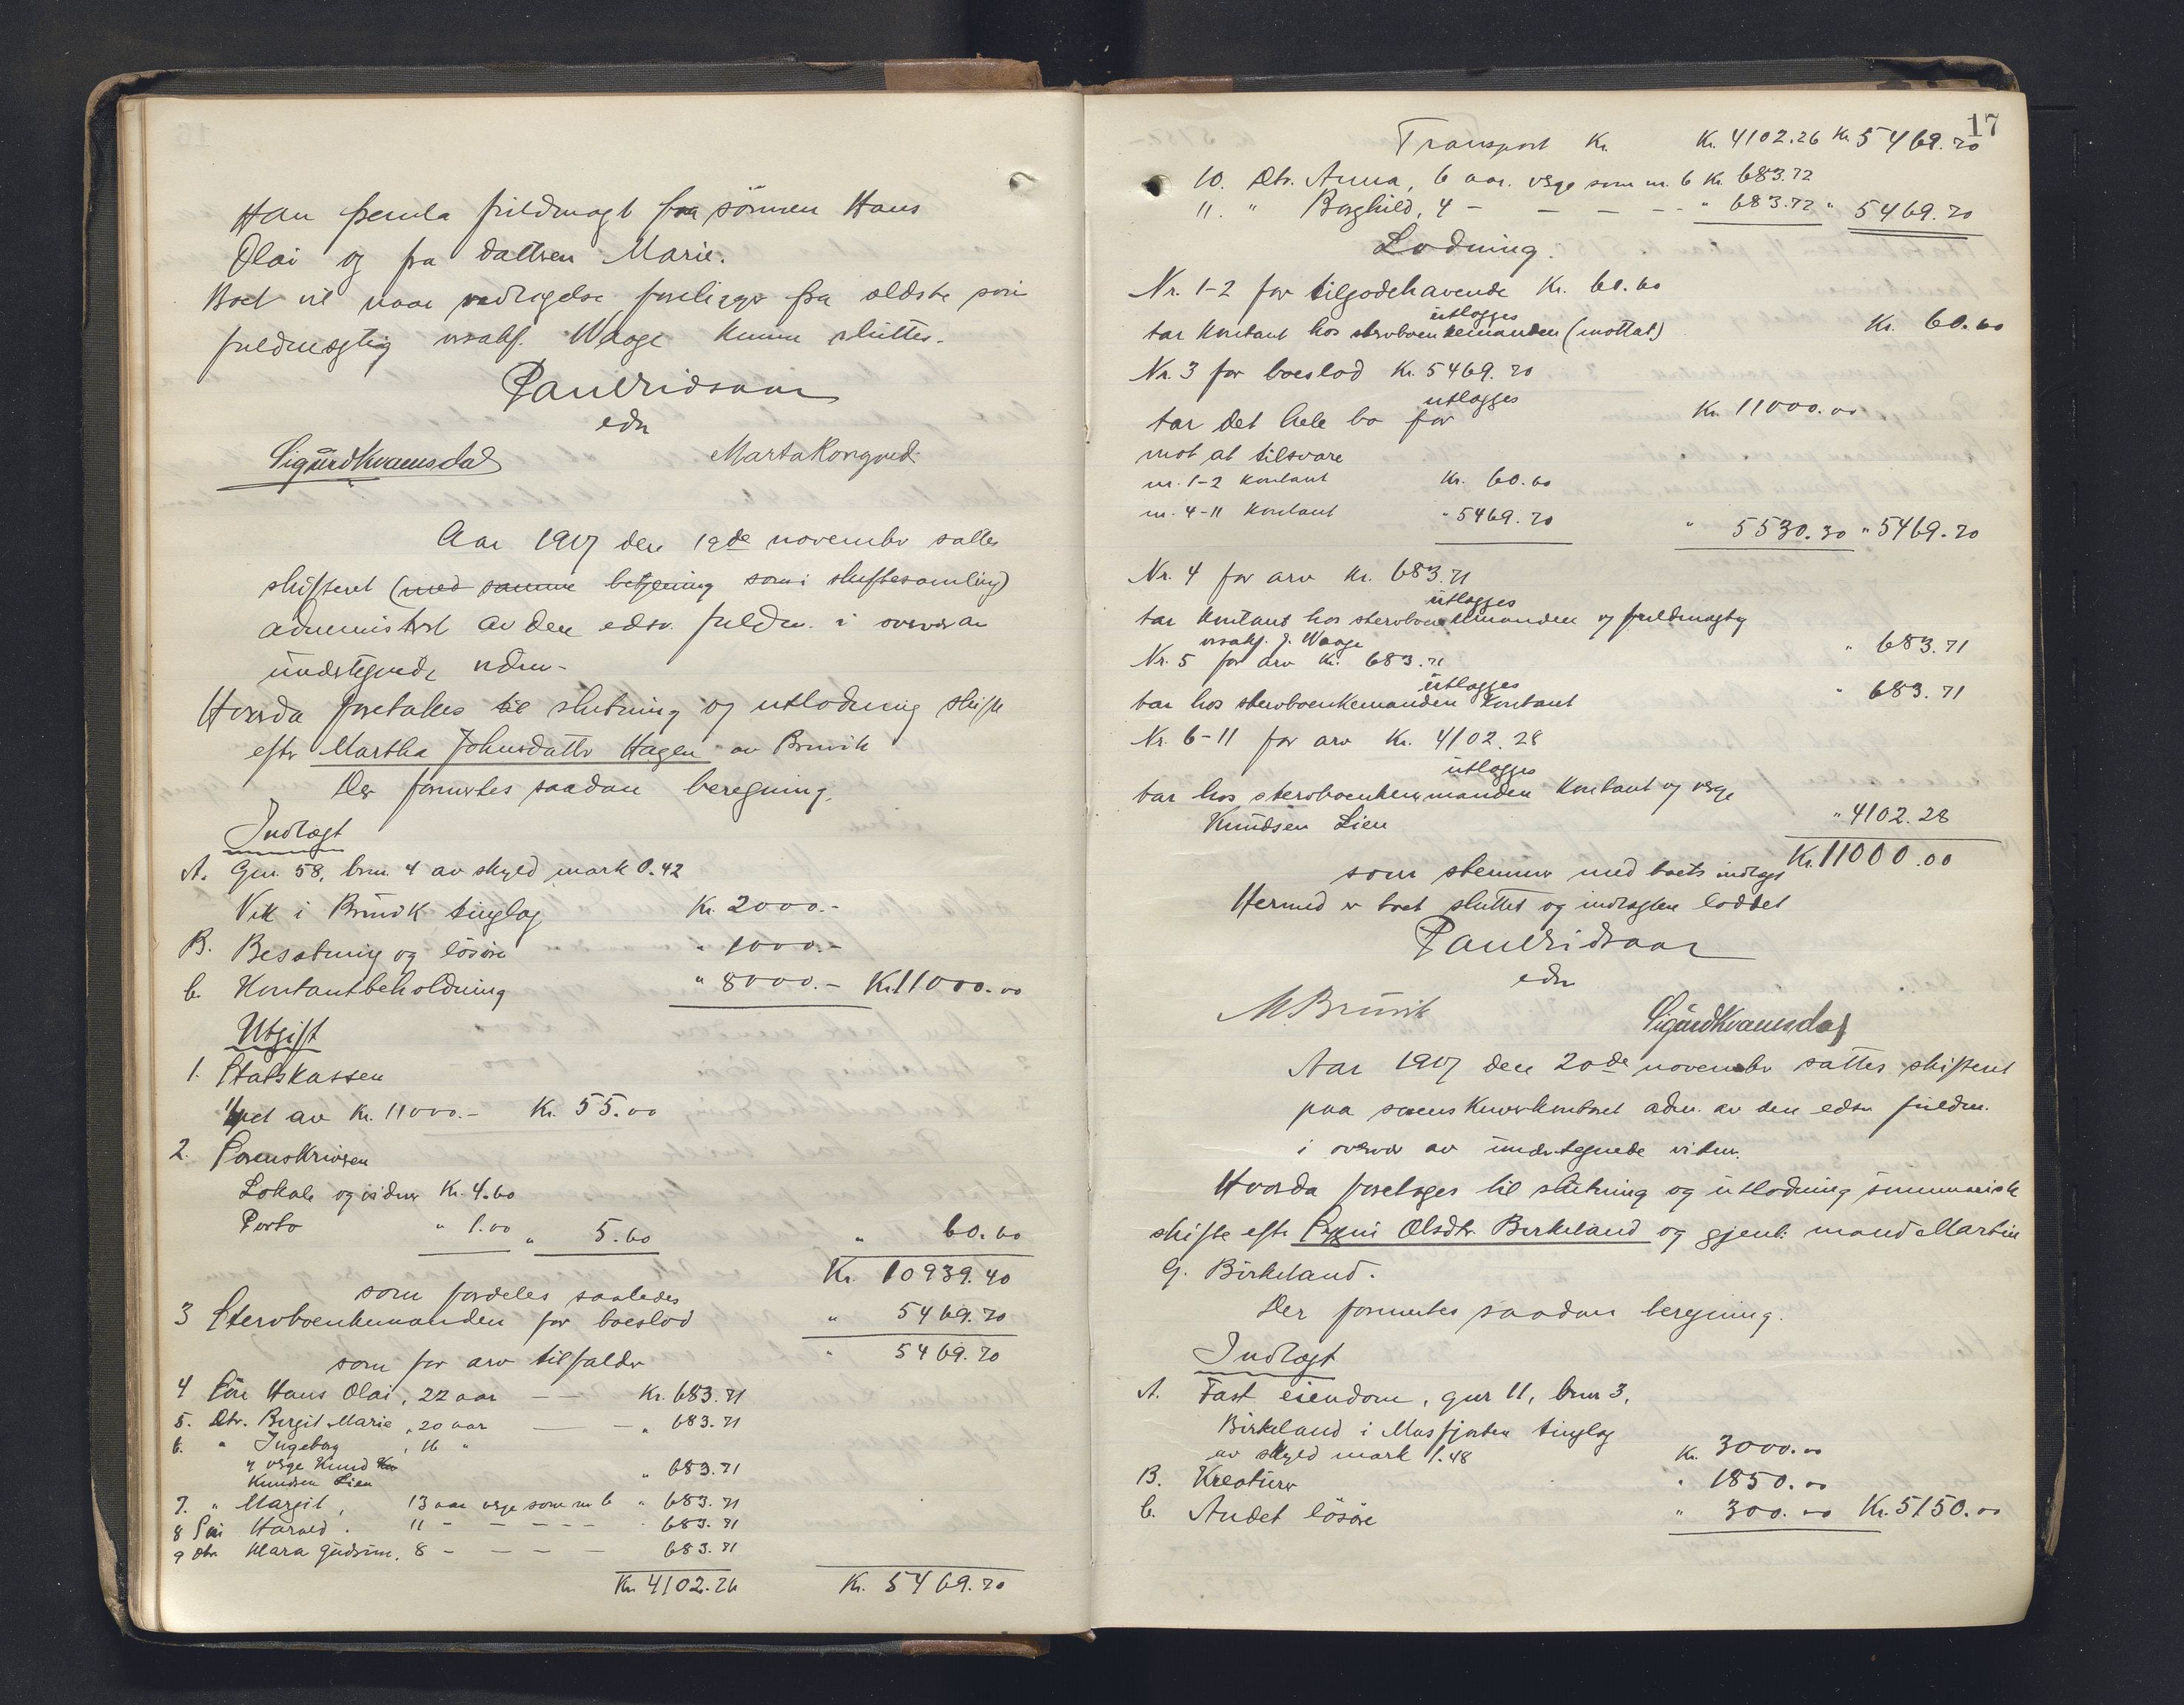 Han fremla fuldmagt fra sønnen Hans
Olai og fra datteren Marie.
Boet vil naar vedtagelse foreligger fra ældste søn
fuldmægtig Waage kunne sluttes.
edsv
Sigurd Kvamsdal Marta Kongsved
Aar 1917 den 19de november sattes
skifteret (med samme betjening som i skiftesamling)
administrert av den edsv. fuldm. i overvær av
undertegnede vidne.
Hvorda foretakes til slutning og utlodning skifte
efter Martha Johnsdatter Hagen av Bruvik
Der formertes saadan beregning.
Indtægt
A. Gnr. 58, brnr. 4 av skyld mark 0.42
Vik i Bruvik tinglag Kr. 2000.-
B. Besætning og løsøre " 1000.-
C. Kontantbeholdning " 8000.- Kr. 11000.00
Utgift
1. Statskassen
½ pct av Kr. 11000.- Kr. 55.00
2. Sorenskriveren
Lokale og vidner Kr. 4.60
Porto " 1.00 " 5.60 " 60.60
Kr. 10939.40
som fordeles saaledes
3 Stervboenkemanden for boeslod " 5469.70
som for arv tilfalder " 5469.70
4 Søn Hans Olai, 22 aar — — Kr. 683.71
5. Dtr. Bergit Marie, 20 aar — — " 683.71
6. " Ingeborg, 16 "
v verge Knud Kn
Knudsen Lien " 683.71
7. " Margit, 13 aar verge som nr 6 " 683.71
8 Søn Harald. 11 - — — — — " 683.71
9 Dtr. Klara Gudrun, 8 - — — — 683.71
Kr. 4102.26 Kr. 5469.70
17
Transport Kr. Kr. 4102.26 Kr. 5469.70
10. Dtr. Anna, 6 aar. verge som nr. 6 Kr. 683.72
11. " Borghild, 4 - — — — " 683.72 " 5469.70
Lodning.
Nr. 1-2 for tilgodehavende Kr. 60.60
utlægges
tar kontant hos stervboenkemanden (mottat) Kr. 60.60
Nr. 3 for boeslod Kr. 5469.70
utlægges
tar det hele bo for Kr. 11000.00
mot at tilsvare
nr. 1-2 kontant Kr. 60.60
nr. 4-11 kontant " 5469.70 " 5530.30 " 5469.70
Nr. 4 for arv Kr. 683.71
utlægges
tar kontant hos stervboenkemanden og fuldmægtig
J. Waage " 683.71
Nr. 5 for arv Kr. 683.71
utlægges
tar hos stervboenkemanden kontant " 683.71
Nr. 6-11 for arv Kr. 4102.28
utlægges
tar hos stervboenkemanden kontant og verge
Knudsen Lien " 4102.28
som stemmer med boets indtægt Kr. 11000.00
Hermed er boet sluttet og indtægten loddet
edsv
M. Bruvik Sigurd Kvamsdal
Aar 1917 den 20de november sattes skifteret
paa sorenskriverkontoret adm. av den edsv fuldm.
i overvær av undertegnede vidner.
Hvorda foretoges til slutning og utlodning summarisk
skifte efter Olsdtr. Birkeland og gjenl. mand Martin
G. Birkeland.
Der formertes saadan beregning.
Indtægt
A. Fast eiendom, gnr 11, bnr 3,
Birkeland i Masfjorden tinglag
av skyld mark 1.48 Kr. 3000.00
B. Kreaturer " 1850.00
C. Andet løsøre " 300.00 Kr. 5150.00